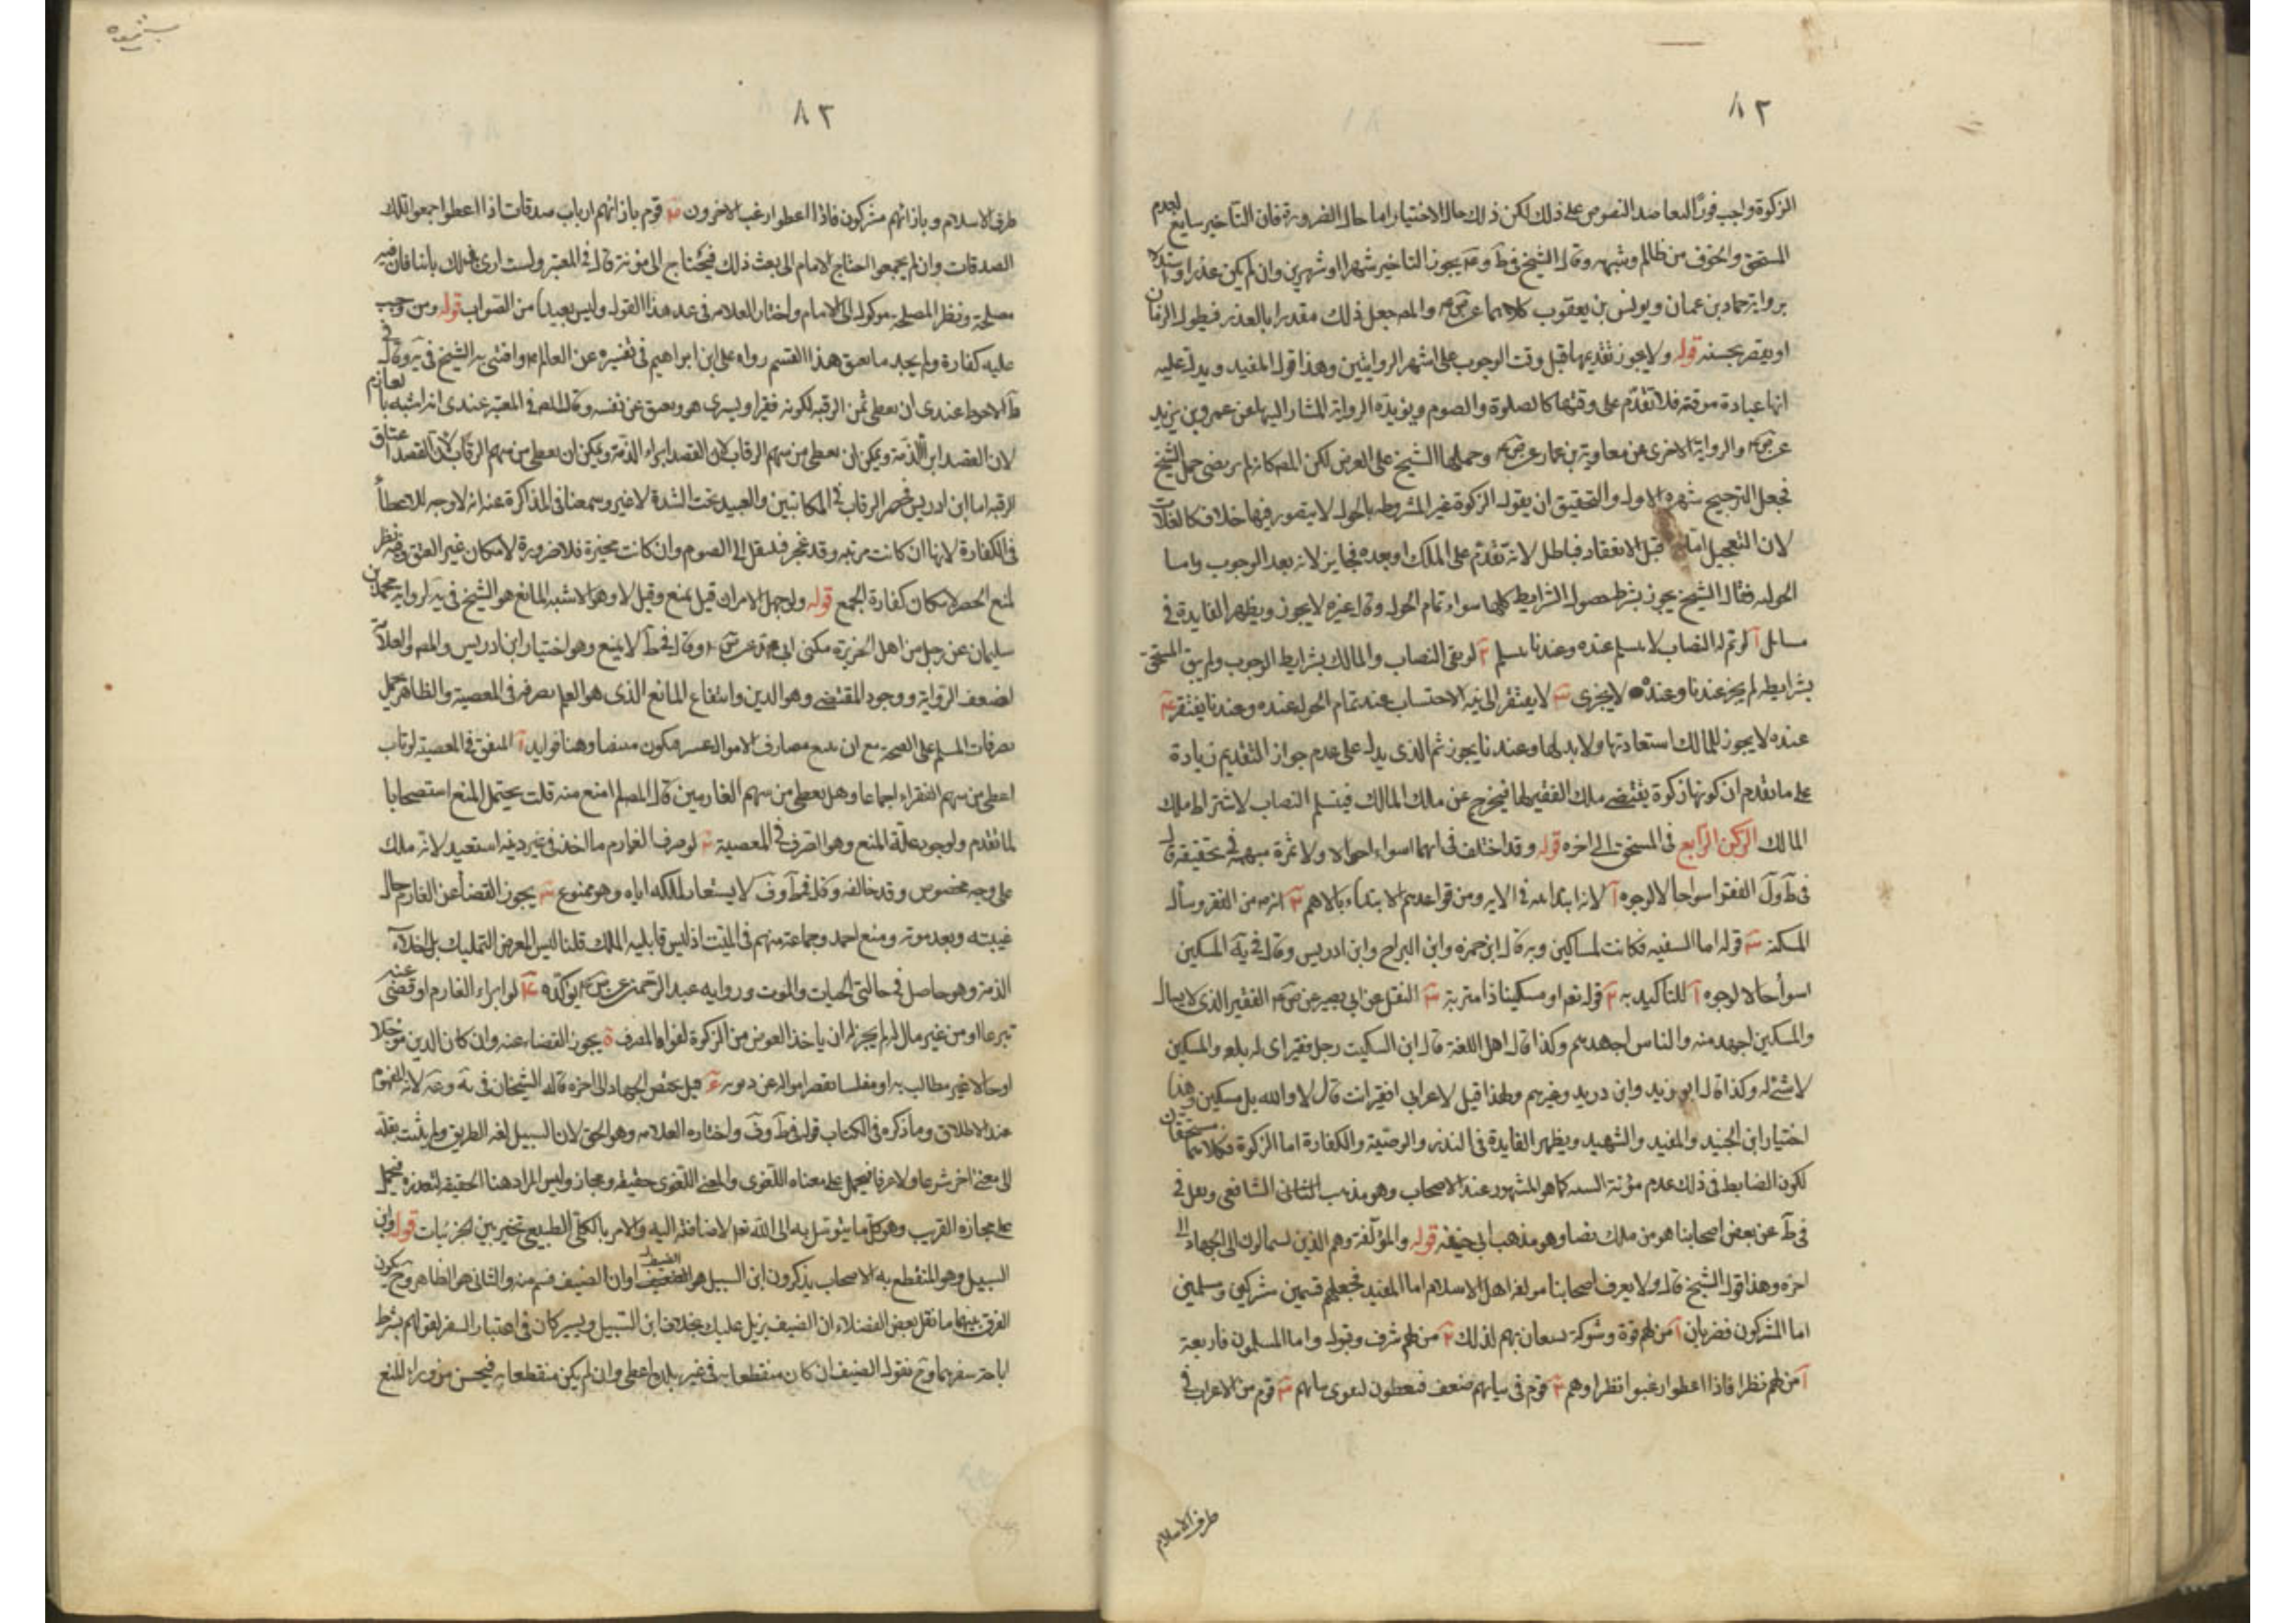 ٨٢
الزكوة واجب فورًا لتعاضد النصوص على ذلك لكن ذلك حال الاختيار اما حال الضرورة فان التأخير سايغ لعدم
المستحق والخوف من ظالم وشبهه وقال الشيخ في ط و يه يجوز التاخير شهرا او شهرين وان لم يكن عذر
برواية حماد بن عثمان ويونس بن يعقوب كلاهما عن ص م والمص جعل ذلك مقدرا بالعذر فيطول الزمان
او يقصر بحسبه قوله ولا يجوز تقديمها قبل وقت الوجوب على اشهر الروايتين وهذا قول المفيد ويدل عليه
انها عبادة موقتة فلا تقدّم على وقتها كالصلوة والصوم ويؤيده الرواية المشار اليها عن عمر بن يزيد
عن ص م والرواية الاخرى عن معاوية بن عمار عن ص م وحملها الشيخ على القرض لكن المص كانه لم يرتض حمل الشيخ
فجعل الترجيح شهرة الاول والتحقيق ان يقول الزكوة غير المشروطه بالحول لا يتصور فيها خلاف كالغلات
لان التعجيل اما قبل الانعقاد فباطل لانه تقدّم على الملك او بعده فجايز لانه بعد الوجوب واما
الحول فقال الشيخ يجوز بشرط حصول الشرايط كلها سواء تمام الحول وقال غيره لا يجوز ويظهر الفايدة في
مسائل آ لو تم له النصاب لا يسلم عنده وعندنا يسلم ٢ لو بقي النصاب والمالك بشرايط الوجوب ولم يبق المستحق
بشرايطه لم يجز عندنا وعنده لا يجزى ٣ لا يفتقر الى نية الاحتساب عند تمام الحول عنده وعندنا يفتقر ٤
عنده لا يجوز للمالك استعادتها ولا بدلها وعندنا يجوز ثم الذى يدل على عدم جواز التقديم زيادة
على ما تقدم ان كونها زكوة يقتضى ملك الفقير لها فيخرج عن ملك المالك فينثلم النصاب لاشتراط ملك
المالك الركن الرابع في المستحق الى اخره قوله وقد اختلف في ايهما اسواء احوالا ولا ثمرة مهمة في تحقيقه قال
في ط و ل الفقير اسوا حالا لوجوه آ لانه ابتدا به في الايه ومن قواعدهم الابتداء بالاهم ٢ انه م من الفقر وسأل
المسكنة ٣ قوله اما السفينه فكانت لمساكين وبه قال ابن حمزه وابن البراج وابن ادريس وقال في يه المسكين
اسوأ حالا لوجوه آ للتأكيد به ٢ قوله تعم او مسكينا ذا متربة ٣ النقل عن ابي بصير عن ص م الفقير الذى لا يسأل
والمسكين اجهد منه والناس اجهدهم وكذا قال اهل اللغة قال ابن السكيت رجل فقير اى له بلغه والمسكين
لا شئ له وكذا قال ابو زيد وابن دريد وغيرهم ولهذا قيل لاعرابى افقير انت قال لا والله بل مسكين وهذا
اختيار ابن الجنيد والمفيد والشهيد ويظهر الفايدة في النذر والوصية والكفارة اما الزكوة فكلاهما مستحقان
لكون الضابط في ذلك عدم مؤنة السنه كما هو المشهور عند الاصحاب وهو مذهب الشافعى ونقل في
في ط عن بعض اصحابنا هو من ملك نصابا وهو مذهب ابى حنيفه قوله والمؤلفة وهم الذين يستمالون الى الجهاد الى
اخره وهذا قول الشيخ قال ولا يعرف اصحابنا مولفة اهل الاسلام اما المفيد فجعلهم قسمين مشركين ومسلمين
اما المشركون فضربان آ من لهم قوة وشوكة يستعان بهم لذلك ٢ من لهم شرف وقبول واما المسلمون فاربعة
آ من لهم نظرا فاذا اعطوا رغبوا نظراوهم ٢ قوم في نياتهم ضعف فيعطون لتقوى نياتهم ٣ قوم من الاعراب في
طرف الاسلام
٨٣
طرف الاسلام وبازائهم مشركون فاذا اعطوا رغب الاخرون ٤ قوم بازائهم ارباب صدقات اذا اعطوا جمعوا تلك
الصدقات وان لم يجمعوا احتاج الامام الى بعث ذلك فيحتاج الى مؤنة قال في المعتبر ولست ارى بذلك بأسا فان فيه
مصلحة ونظر المصلحة موكول الى الامام واختار العلامه في عد هذا القول وليس بعيدا من الصواب قوله ومن وجب
عليه كفارة ولم يجد ما يعتق هذا القسم رواه على ابن ابراهيم في تفسيره عن العالم م وافتى به الشيخ في يه وقال في
ط الاحوط عندى ان يعطى ثمن الرقبه لكونه فقيرا ويشترى هو ويعتق عن نفسه وقال المص في المعتبر عندى انه اشبه بالغارم
لان القصد ابراء الذمة ويمكن ان يعطى من سهم الرقاب لان القصد اعتاق
الرقبه اما ابن ادريس فحصر الرقاب في المكاتبين والعبيد تحت الشدة لا غير وسمعنا في المذاكرة عنه انه لا وجه للاعطاء
في الكفارة لانها ان كانت مرتبه وقد عجز فينتقل الى الصوم وان كانت مخيرة فلا ضرورة لامكان غير العتق وفيه نظر
لمنع الحصر لامكان كفارة الجمع قوله ولو جهل الامران قيل يمنع وقيل لا وهو الاشبه المانع هو الشيخ في يه لرواية محمد بن
سليمان عن رجل من اهل الجزيرة يكنى ابا محمد وقال في ط لا يمنع وهو اختيار ابن ادريس والمص والعلامة
لضعف الرواية ووجود المقتضى وهو الدين وانتفاع المانع الذى هو العلم بصرفه في المعصية والظاهر حمل
تصرفات المسلم على الصحة وهنا فوايد آ المنفق في المعصية لو تاب
اعطى من سهم الفقراء اجماعا وهل يعطى من سهم الغارمين قال المص لم امنع منه قلت يحتمل المنع استصحابا
لما تقدم ولوجود علة المنع وهو الصرف في المعصية ٢ لو صرف الغارم ما اخذ في غير دينه استعيد لانه ملك
على وجه مخصوص وقد خالفه وقال في ط و ف لا يستعاد لملكه اياه وهو ممنوع ٣ يجوز القضاء عن الغارم حال
غيبته وبعد موته ومنع احمد وجماعة منهم في الميت اذ ليس قابليه الملك قلنا ليس الغرض التمليك بل اخلاء
الذمة وهو حاصل في حالتى الحيات والموت ورواية عبد الرحمن عن ص م يؤكده ٤ لو ابراء الغارم او قضى عنه
تبرعا او من غير مال له لم يجز له ان ياخذ العوض من الزكوة لفوات المصرف ٥ يجوز القضاء عنه وان كان الدين مؤجلا
او حالا غير مطالب به او مفلسا يقصر امواله عن ديونه قيل يختص الجهاد الى اخره قاله الشيخان في يه و عه لانه المفهوم
عند الاطلاق وما ذكره في الكتاب قوله في ط و ف واختاره العلامه وهو الحق لان السبيل لغة الطريق ولم يثبت نقله
الى معنى اخر شرعا ولا عرفا فيحمل على معناه اللغوى والمعنى اللغوى حقيقه ومجاز وليس المراد هنا الحقيقه لتعذره فيحمل
على مجازه القريب وهو كل ما يتوسل به الى الله تعم لاضافته اليه والامر بالكلى الطبيعى تخيير بين الجزئيات قوله وابن
السبيل وهو المنقطع به الاصحاب يذكرون ابن السبيل هو الضيف او ان الضيف قسم منه والثانى هو الظاهر وح يكون
الفرق بينهما ما نقل بعض الفضلاء ان الضيف نزيل عليك بخلاف ابن السبيل ويشتركان في اعتبار السفر لقولهم بشرط
اباحة سفرهما وح نقول الضيف ان كان منقطعا به في غير بلده اعطى وان لم يكن منقطعا به فيحسن من وراء المنع